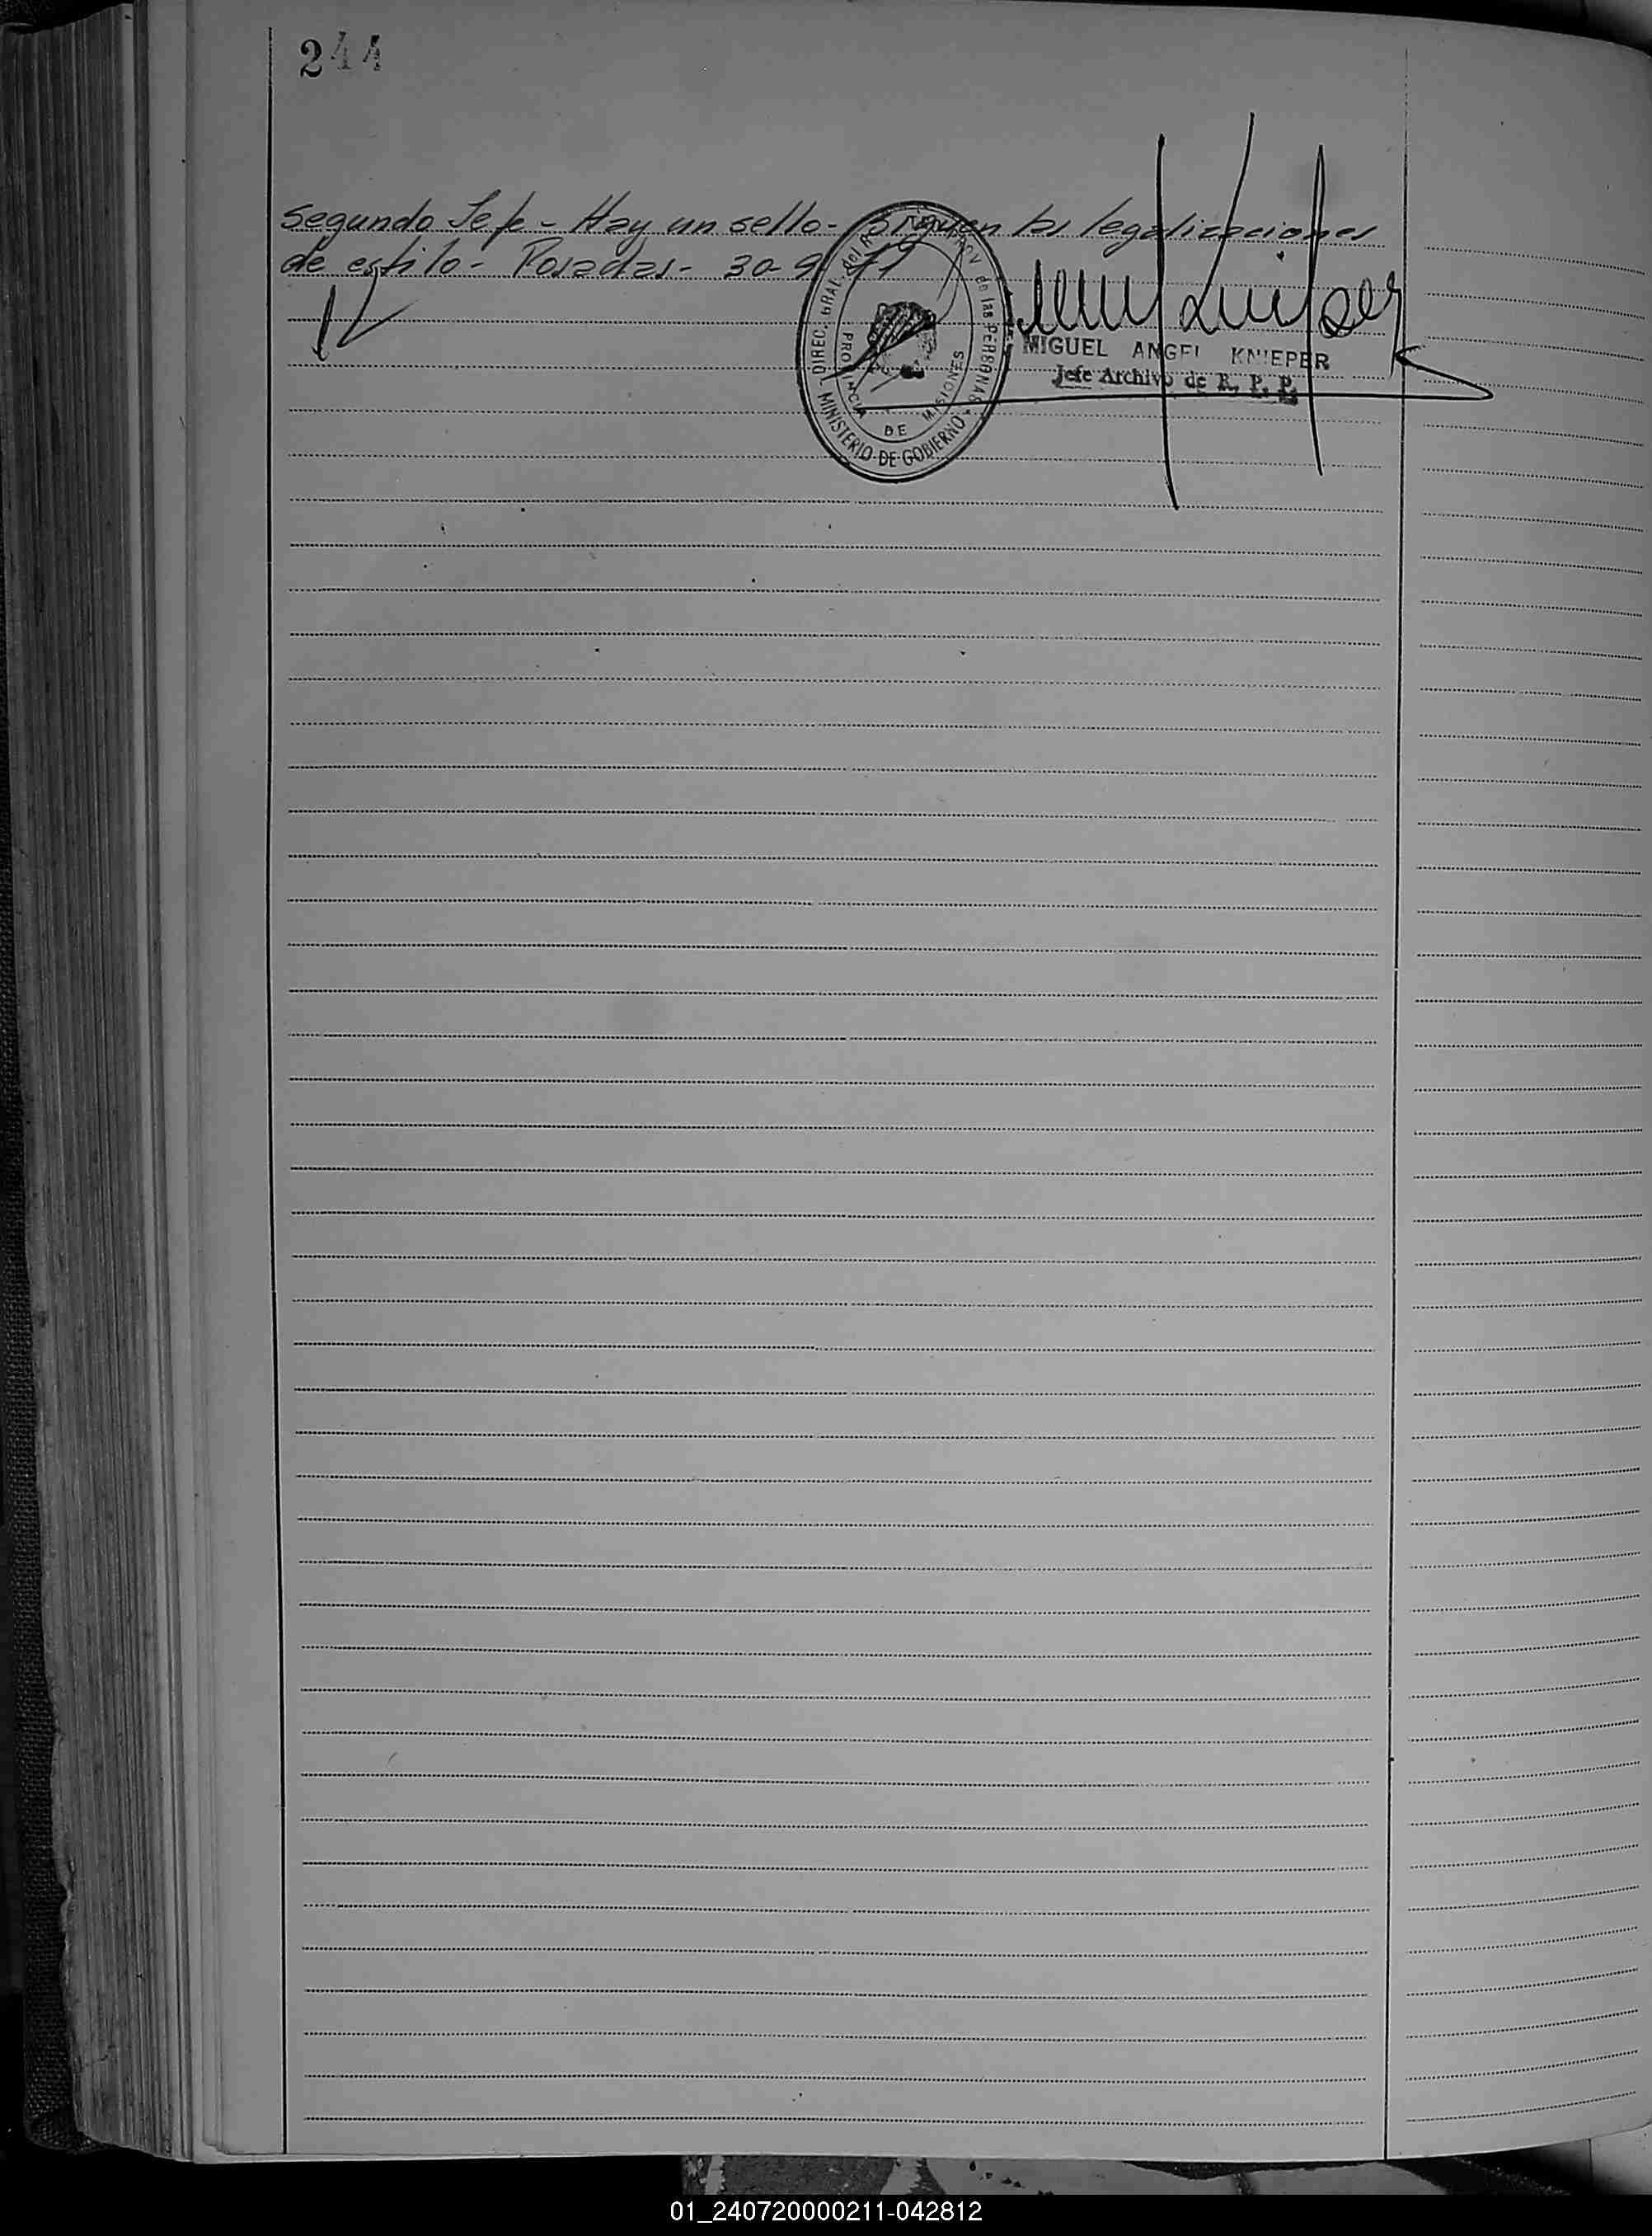 244
Segundo Jefe - Hay un sello - Siguen las legalizaciones
de estilo - Posadas - 30-9-
DIREC. GRAL. del de las PERSONAS
MINISTERIO DE GOBIERNO
PROVINCIA DE MISIONES
MIGUEL ANGEL KNIEPER
Jefe Archivo de R. P. P.
01_240720000211-042812